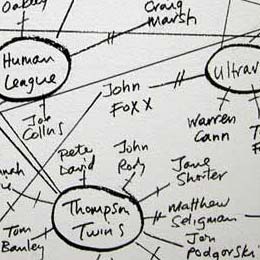 Oakey
Craig
Marsh
Human
League
John
Foxx
Ultrav
Warren
Cann
Job
Collins
Pete
David
John
Rody
Jane
Shorter
Thompson
Twins
Matthew
Seligman
Tom
Bailey
Jon
Podgorski